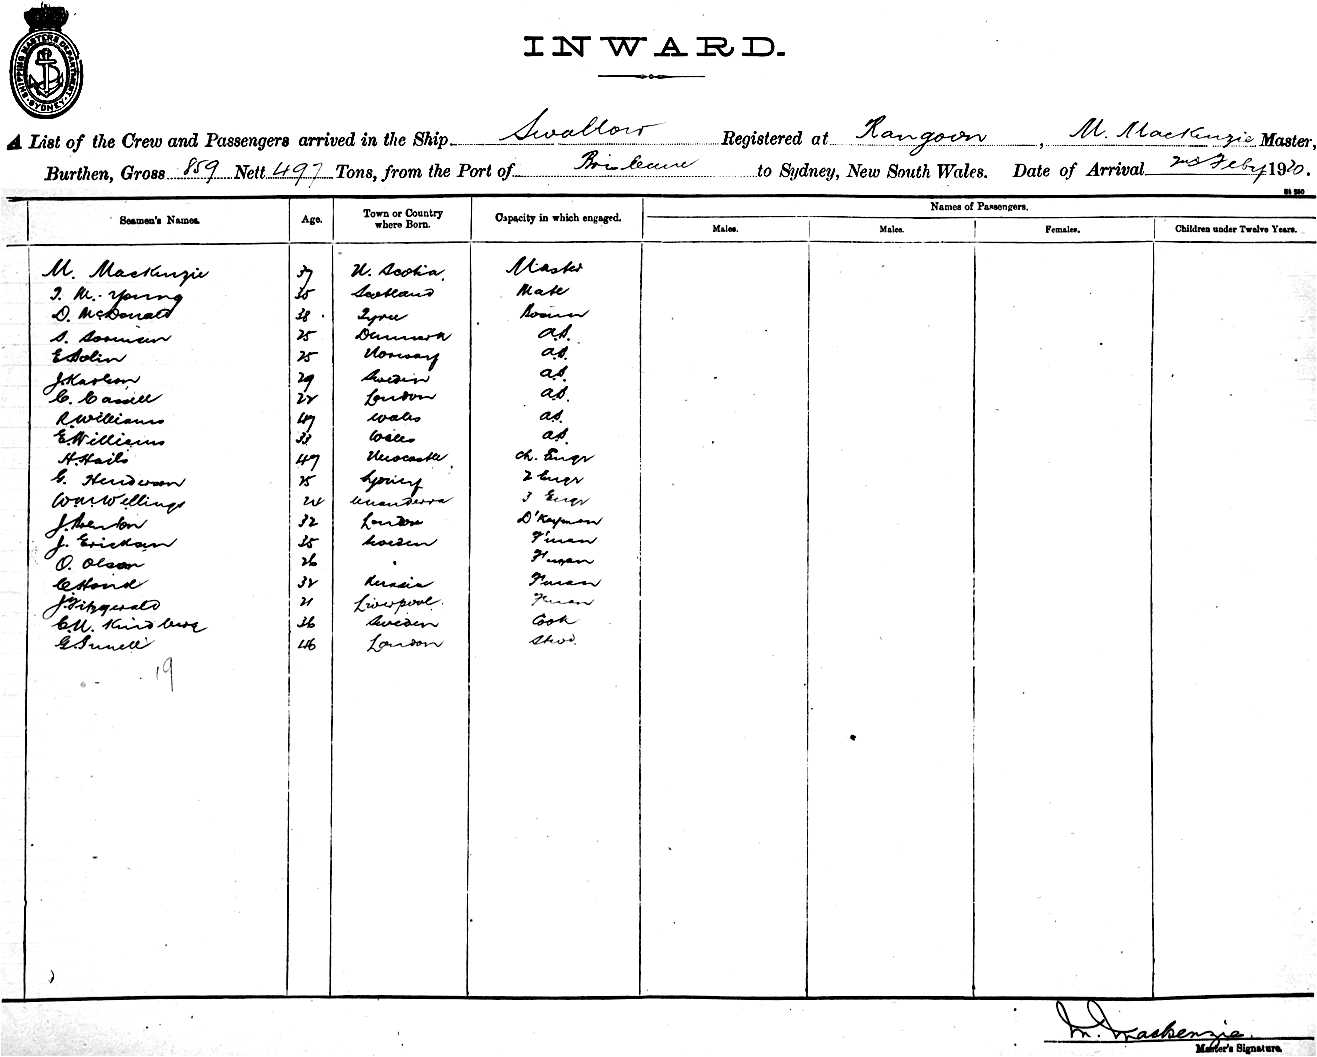 SHIPPING MASTERS DEPARTMENT SYDNEY
INWARD.
A List of the Crew and Passengers arrived in the Ship Swallow Registered at Rangoon, M. MacKenzie Master,
Burthen, Gross 859 Nett 497 Tons, from the Port of Brisbane to Sydney, New South Wales. Date of Arrival 2nd Feby 1920.
Names of Passengers.
Seamen's Names. Age. Town or Country where Born. Capacity in which engaged. Males. Males. Females. Children under Twelve Years.
M. MacKenzie 37 N. Scotia Master
J. M. Young 35 Scotland Mate
D. McDonald 38 Tyree Bosun
S. Sorensen 25 Denmark AS.
E Solin 25 Norway AS.
J. Karlson 29 Sweden AS.
C. Cassell 22 London AS.
R. Williams 47 Wales AS.
E. Williams 33 Wales AS.
H. Hails 47 Newcastle Ch. Engr
G. Henderson 25 Sydney 2 Engr
W. M. Wellings Unanderra 3 Engr
J. 32 London D'Keyman
J. Erickson 35 Sweden F'man
O. Olson 26 " F'man
C Hond 32 Russia F'man
J. Fitzgerald 21 Liverpool F'man
C. U. Kindberg 36 Sweden Cook
G. 46 London Stwd.
19
M. Mackenzie.
Master's Signature.